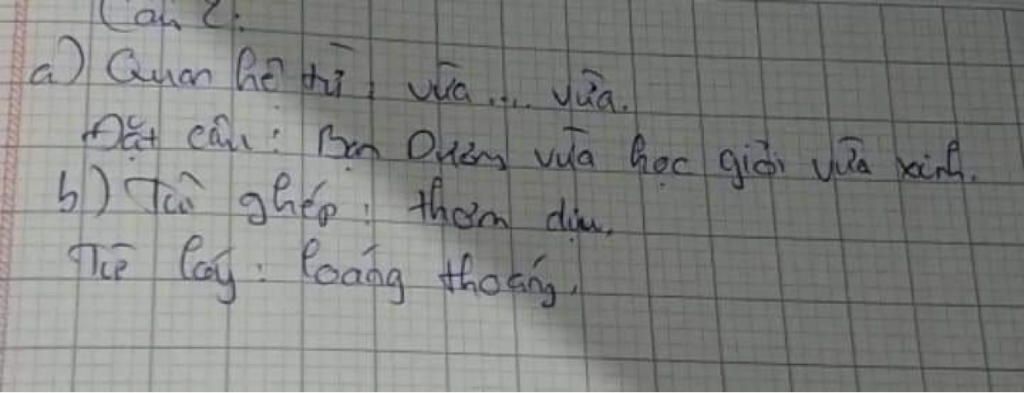 Câu 2:
a) Quan hệ từ: vừa ... vừa.
Đặt câu: Bạn vừa học giỏi vừa xinh.
b) Từ ghép: thơm dịu.
Từ láy: loáng thoáng.